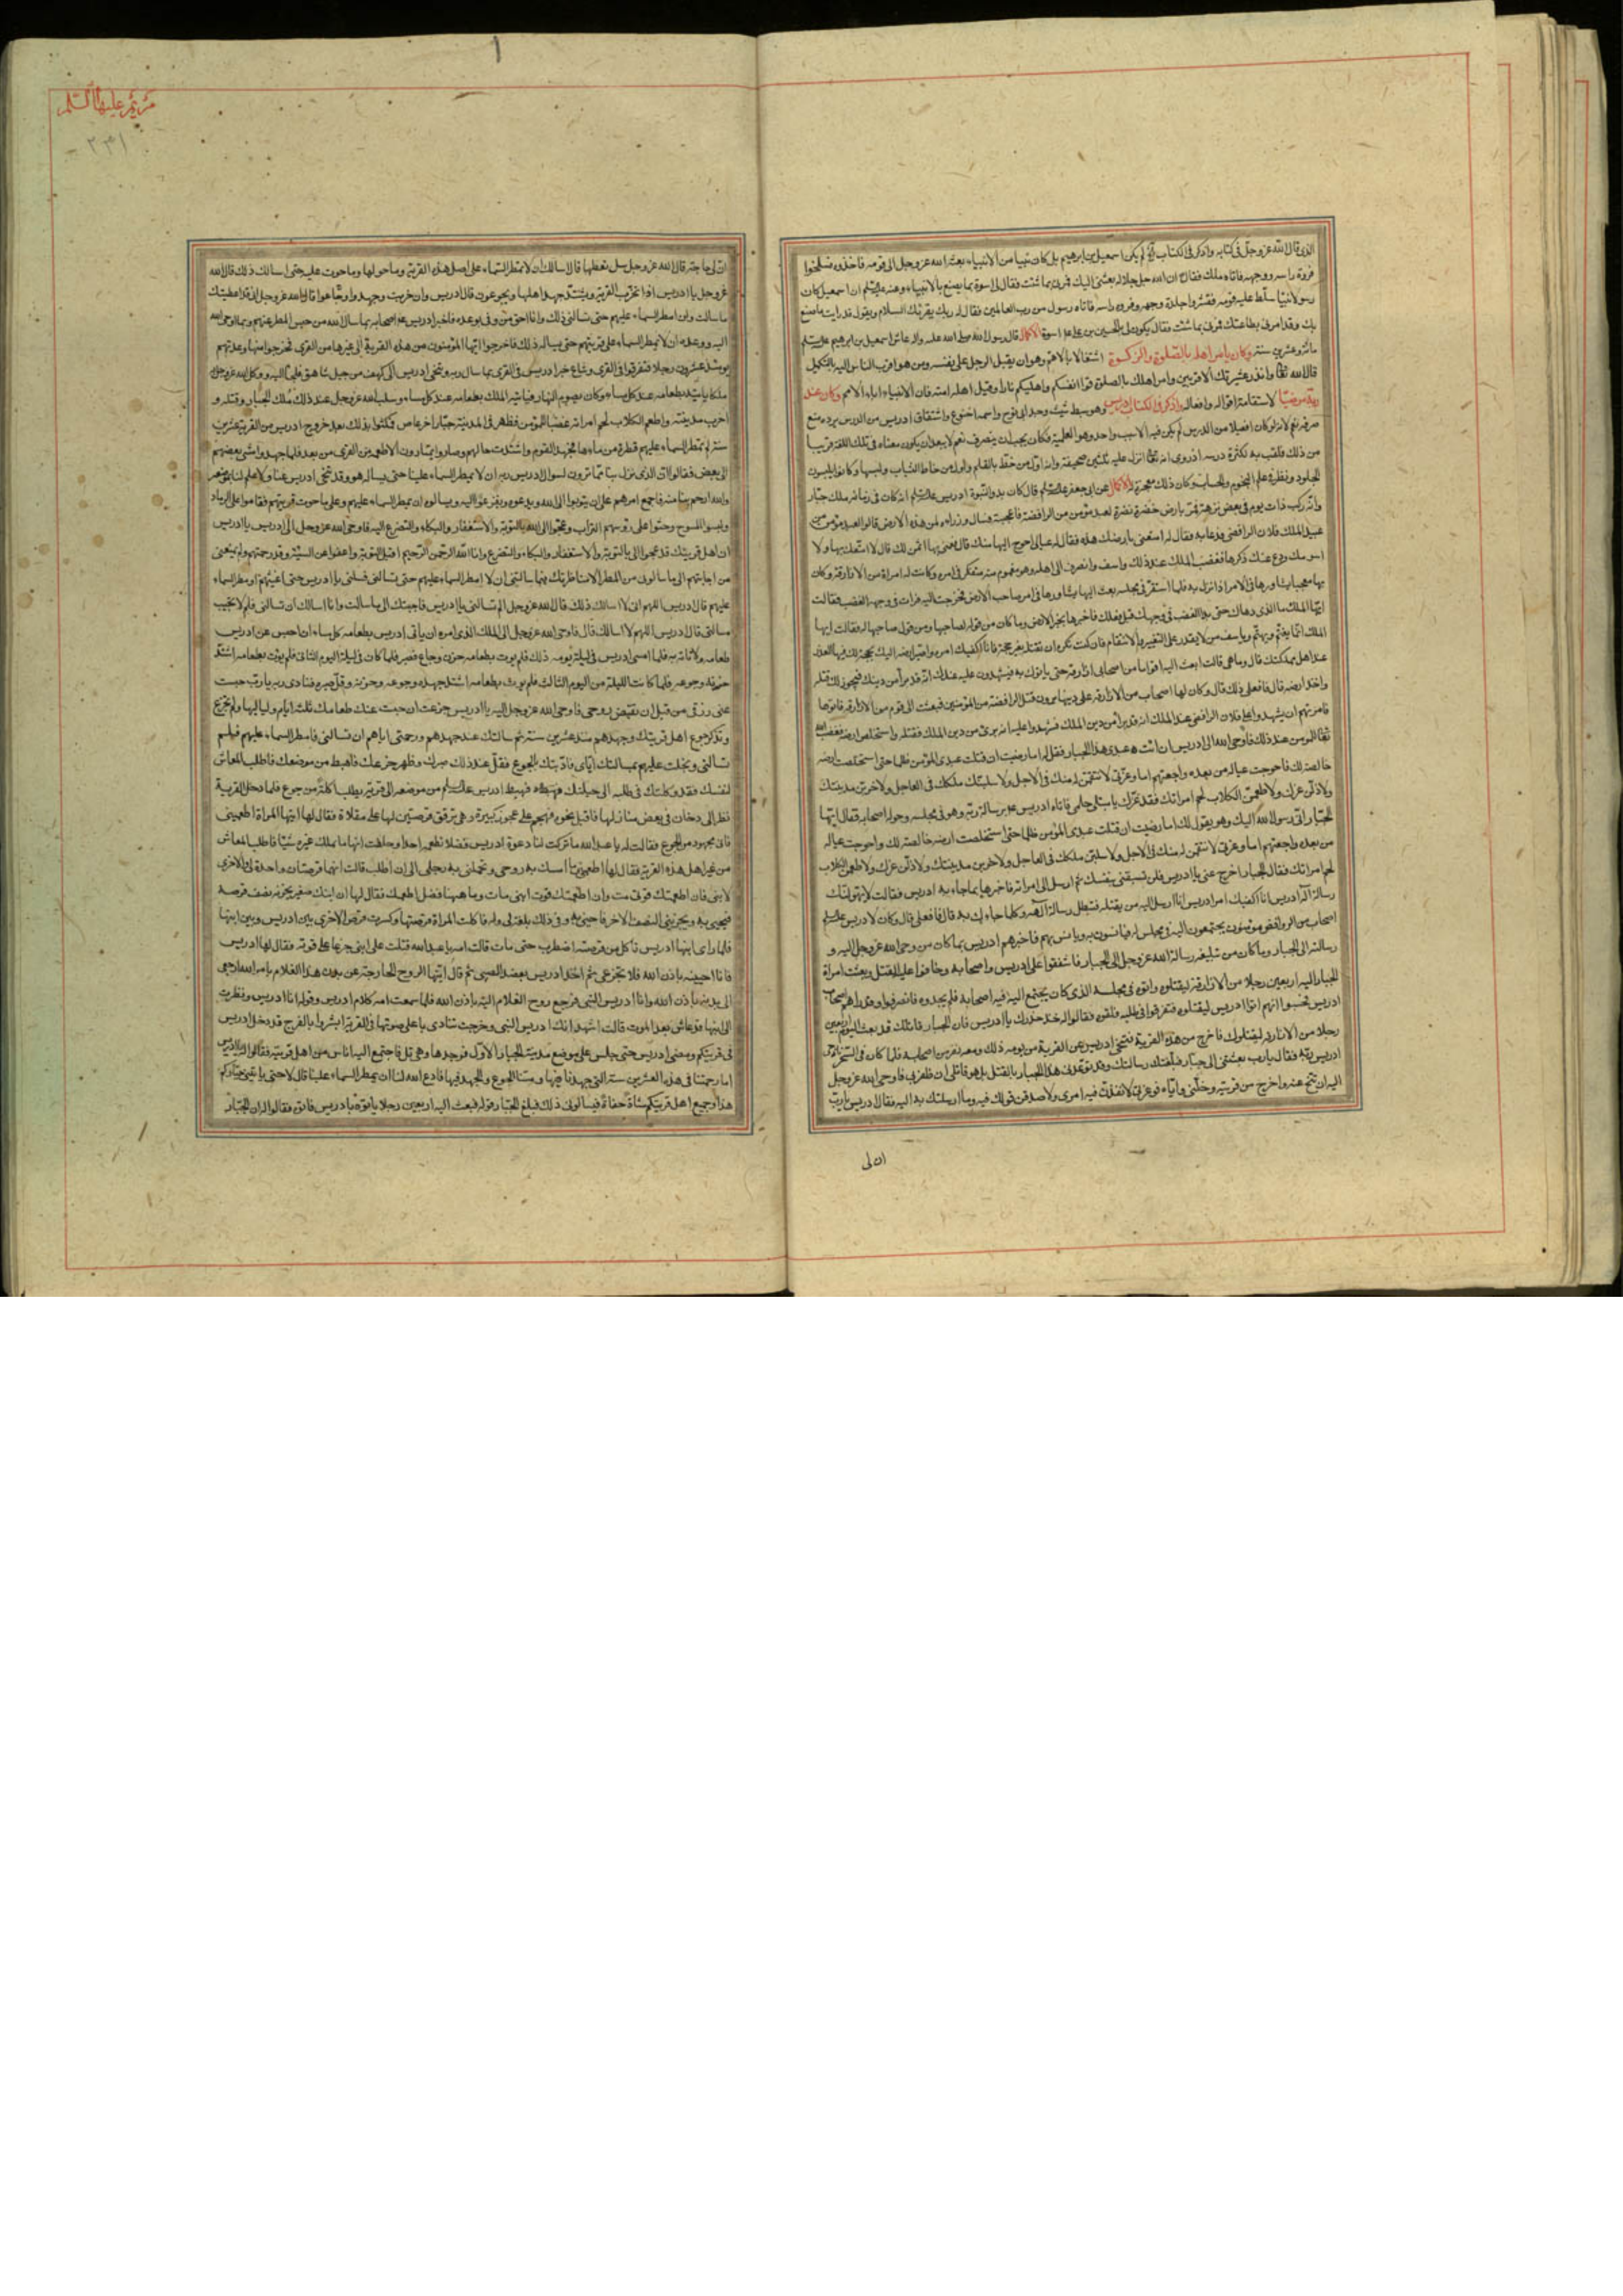 الذي قال الله عز وجل في كتابه واذكر في الكتاب لم يكن اسمعيل بن ابرهيم بل كان نبيا من الانبياء بعثه الله عز وجل الى قومه فاخذوه فسلخوا
فروة راسه ووجهه فاتاه ملك فقال ان الله جل جلاله بعثني اليك فمرني بما شئت فقال لي اسوة بما يصنع بالانبياء وعنه ان اسمعيل كان
رسولا نبيا سلط عليه قومه فقشروا جلدة وجهه وفروة راسه فاتاه رسول من رب العالمين فقال له ربك يقرئك السلام ويقول قد رايت ما صنع
بك وقد امرني بطاعتك فمرني بما شئت فقال يكون لي بالحسين بن علي اسوة قال رسول الله صلى الله عليه واله عاش اسمعيل بن ابرهيم
مائة وعشرين سنة وكان يامر اهله بالصلوة والزكوة اشتغالا بالاهم وهو ان يقبل الرجل على نفسه ومن هو اقرب الناس اليه بالتكميل
قال الله وانذر عشيرتك الاقربين وامر اهلك بالصلوة قوا انفسكم واهليكم نارا وقيل اهله امته فان الانبياء اباء الامم وكان عند
ربه مرضيا لاستقامة اقواله وافعاله واذكر في الكتاب ادريس وهو سبط شيث وجد ابي نوح واسمه اخنوخ واشتقاق ادريس من الدرس يرده منع
صرفه نعم لانه لو كان افعيلا من الدرس لم يكن فيه الا سبب واحد وهو العلمية فكان يجب ان ينصرف نعم لا يبعد ان يكون معناه في تلك اللغة قريبا
من ذلك فلقب به لكثرة درسه اذ روي انه انزل عليه ثلثين صحيفة وانه اول من خط بالقلم واول من خاط الثياب ولبسها وكانوا يلبسون
الجلود ونظر في علم النجوم والحساب وكان ذلك معجزة له عن ابي جعفر قال كان بدو النبوة ادريس انه كان في زمانه ملك جبار
وانه ركب ذات يوم في بعض نزهته فمر بارض خضرة نضرة لعبد مؤمن من الرافضة فاعجبته فسال وزراءه لمن هذه الارض قالوا لعبد مؤمن من
عبيد الملك فلان الرافضي فدعا به فقال له امتعني بارضك هذه فقال له عيالي احوج اليها منك قال فبعني بها اثمن لك قال لا امتعك بها ولا
اسومك ودع عنك ذكرها فغضب الملك عند ذلك واسف وانصرف الى اهله وهو مغموم متفكر في امره وكانت له امراة من الازارقة وكان
بها معجبا يشاورها في الامر اذا نزل به فلما استقر في مجلسه بعث اليها يشاورها في امر صاحب الارض فخرجت اليه فرات في وجهه الغضب فقالت
ايها الملك ما الذي دهاك حتى بدا الغضب في وجهك قبل فعلك فاخبرها بخبر الارض وما كان من قوله لصاحبها ومن قول صاحبها له فقالت ايها
الملك انما يغتم ويهتم وياسف من لا يقدر على التغيير والانتقام فان كنت تكره ان تقتله بغير حجة فانا اكفيك امره واصير ارضه اليك بحجة لك فيها العذر
عند اهل مملكتك قال وما هي قالت ابعث اليه اقواما من اصحابي ازارقة حتى ياتوك به فيشهدون عليه عندك انه قد برا من دينك فيجوز لك قتله
واخذ ارضه قال فافعلي ذلك قال وكان لها اصحاب من الازارقة على دينها يرون قتل الرافضة من المؤمنين فبعثت الى قوم من الازارقة فاتوها
فامرتهم ان يشهدوا على فلان الرافضي عند الملك انه قد برا من دين الملك فشهدوا عليه انه برئ من دين الملك فقتله واستخلص ارضه فغضب الله
للمؤمن عند ذلك فاوحى الله الى ادريس ان ائت عبدي هذا الجبار فقل له اما رضيت ان قتلت عبدي المؤمن ظلما حتى استخلصت ارضه
خالصة لك فاحوجت عياله من بعده واجعتهم اما وعزتي لانتقمن له منك في الاجل ولاسلبنك ملكك في العاجل ولاخربن مدينتك
ولاذلن عزك ولاطعمن الكلاب لحم امراتك فقد غرك يا مبتلى حلمي فاتاه ادريس برسالة ربه وهو في مجلسه وحوله اصحابه فقال ايها
الجبار اني رسول الله اليك وهو يقول لك اما رضيت ان قتلت عبدي المؤمن ظلما حتى استخلصت ارضه خالصة لك واحوجت عياله
من بعده واجعتهم اما وعزتي لانتقمن له منك في الاجل ولاسلبن ملكك في العاجل ولاخربن مدينتك ولاذلن عزك ولاطعمن الكلاب
لحم امراتك فقال الجبار اخرج عني يا ادريس فلن تسبقني بنفسك ثم ارسل الى امراته فاخبرها بما جاء به ادريس فقالت لا تهولنك
رسالة اله ادريس انا اكفيك امر ادريس انا ارسل اليه من يقتله فتبطل رسالة الهه وكلما جاءك به قال فافعلي قال وكان لادريس
اصحاب من الروافض مؤمنون يجتمعون اليه في مجلس له فيانسون به ويانس بهم فاخبرهم ادريس بما كان من وحي الله عز وجل اليه و
رسالته الى الجبار وما كان من تبليغه رسالة الله عز وجل الى الجبار فاشفقوا على ادريس واصحابه وخافوا عليه القتل وبعثت امراة
الجبار اليه اربعين رجلا من الازارقة ليقتلوه واتوه في مجلسه الذي كان يجتمع اليه فيه اصحابه فلم يجدوه فانصرفوا وقد راهم اصحاب
ادريس فحسبوا انهم اتوا ادريس ليقتلوه فتفرقوا في طلبه فلقوه فقالوا له خذ حذرك يا ادريس فان الجبار قاتلك قد بعث اليوم اربعين
رجلا من الازارقة ليقتلوك فاخرج من هذه القرية فتنحى ادريس عن القرية من يومه ذلك ومعه نفر من اصحابه فلما كان في السحر ناجى
ادريس ربه فقال يا رب بعثتني الى جبار فبلغت رسالتك وقد توعدني هذا الجبار بالقتل بل هو قاتلي ان ظفر بي فاوحى الله عز وجل
اليه ان تنح عنه واخرج من قريته وخلني واياه فوعزتي لانفذن فيه امري ولاصدقن قولك فيه وما ارسلتك به اليه فقال ادريس يا رب
ان لي
مريم عليها السلم
٢٣١
ان لي حاجة قال الله عز وجل سل تعطها قال اسالك ان لا تمطر السماء على اهل هذه القرية وما حولها وما حوت عليه حتى اسالك ذلك قال الله
عز وجل يا ادريس اذا تخرب القرية ويشتد جهد اهلها ويجوعون قال ادريس وان خربت وجهدوا وجاعوا قال الله عز وجل اني قد اعطيتك
ما سالت ولن امطر السماء عليهم حتى تسالني ذلك وانا احق من وفى بوعده فاخبر ادريس اصحابه بما سال الله من حبس المطر عنهم وبما اوحى الله
اليه ووعده ان لا يمطر السماء على قريتهم حتى يساله ذلك فاخرجوا ايها المؤمنون من هذه القرية الى غيرها من القرى فخرجوا منها وعدتهم
يومئذ عشرون رجلا فتفرقوا في القرى وشاع خبر ادريس في القرى بما سال ربه وتنحى ادريس الى كهف من جبل شاهق فلجا اليه ووكل الله عز وجل
ملكا ياتيه بطعامه عند كل مساء وكان يصوم النهار فياتيه الملك بطعامه عند كل مساء وسلب الله عز وجل عند ذلك ملك الجبار وقتله و
اخرب مدينته واطعم الكلاب لحم امراته غضبا للمؤمن فظهر في المدينة جبار اخر عاص فمكثوا بذلك بعد خروج ادريس من القرية عشرين
سنة لم تمطر السماء عليهم قطرة من ماءها فجهد القوم واشتدت حالهم وصاروا يمتارون الاطعمة من القرى من بعد فلما جهدوا مشى بعضهم
الى بعض فقالوا ان الذي نزل بنا مما ترون لسوال ادريس ربه ان لا يمطر السماء علينا حتى يساله هو وقد تنحى ادريس عنا ولا علم لنا بموضعه
والله ارحم بنا منه فاجمع امرهم على ان يتوبوا الى الله ويدعوه ويفزعوا اليه ويسالوه ان يمطر السماء عليهم وعلى ما حوت قريتهم فقاموا على الرماد
ولبسوا المسوح وحثوا على رؤسهم التراب وعجوا الى الله بالتوبة والاستغفار والبكاء والتضرع اليه فاوحى الله عز وجل الى ادريس يا ادريس
ان اهل قريتك قد عجوا الي بالتوبة والاستغفار والبكاء والتضرع وانا الله الرحمن الرحيم اقبل التوبة واعفو عن السيئة وقد رحمتهم ولم يمنعني
من اجابتهم الى ما سالوني من المطر الا مناظرتك فيما سالتني ان لا امطر السماء عليهم حتى تسالني فسلني يا ادريس حتى اغيثهم وامطر السماء
عليهم قال ادريس اللهم اني لا اسالك ذلك قال الله عز وجل الم تسالني يا ادريس فاجبتك الى ما سالت وانا اسالك ان تسالني فلم لا تجيب
مسالتي قال ادريس اللهم لا اسالك قال فاوحى الله عز وجل الى الملك الذي امره ان ياتي ادريس بطعامه كل مساء ان احبس عن ادريس
طعامه ولا تاته به فلما امسى ادريس في ليلة يومه ذلك فلم يؤت بطعامه حزن وجاع فصبر فلما كان في ليلة اليوم الثاني فلم يؤت بطعامه اشتد
حزنه وجوعه فلما كانت الليلة من اليوم الثالث فلم يؤت بطعامه اشتد جهده وجوعه وحزنه وقل صبره فنادى ربه يا رب حبست
عني رزقي من قبل ان تقبض روحي فاوحى الله عز وجل اليه يا ادريس جزعت ان حبست عنك طعامك ثلثة ايام ولياليها ولم تجزع
وتذكر جوع اهل قريتك وجهدهم منذ عشرين سنة ثم سالتك عند جهدهم ورحمتي اياهم ان تسالني فامطر السماء عليهم فلم
تسالني وبخلت عليهم بمسالتك اياي فادبتك بالجوع فقل عند ذلك صبرك وظهر جزعك فاهبط من موضعك فاطلب المعاش
لنفسك فقد وكلتك في طلبه الى حيلتك فهبط ادريس من موضعه الى قرية يطلب اكلة من جوع فلما دخل القرية
نظر الى دخان في بعض منازلها فاقبل نحوه فهجم على عجوز كبيرة وهي ترقق قرصتين لها على مقلاة فقال لها ايتها المراة اطعميني
فاني مجهود من الجوع فقالت له يا عبد الله ما تركت لنا دعوة ادريس فضلا نطعمه احدا وحلفت انها ما تملك غيره شيئا فاطلب المعاش
من غير اهل هذه القرية فقال لها اطعميني ما امسك به روحي وتحملني به رجلي الى ان اطلب قالت انهما قرصتان واحدة لي والاخرى
لابني فان اطعمتك قوتي مت وان اطعمتك قوت ابني مات وما ههنا فضل اطعمك فقال لها ان ابنك صغير يجزيه نصف قرصة
فيحيى به ويجزيني النصف الاخر فاحيى به وفي ذلك بلغة لي وله فاكلت المراة قرصتها وكسرت قرص الاخرى بين ادريس وبين ابنها
فلما راى ابنها ادريس ياكل من قرصته اضطرب حتى مات قالت امه يا عبد الله قتلت على ابني جزعا على قوته فقال لها ادريس
فانا احييه باذن الله فلا تجزعي ثم اخذ ادريس بعضد الصبي ثم قال ايتها الروح الخارجة عن بدن هذا الغلام بامر الله ارجعي
الى بدنه باذن الله وانا ادريس النبي فرجع روح الغلام اليه باذن الله فلما سمعت امه كلام ادريس وقوله انا ادريس ونظرت
الى ابنها قد عاش بعد الموت قالت اشهد انك ادريس النبي وخرجت تنادي باعلى صوتها في القرية ابشروا بالفرج قد دخل ادريس
في قريتكم ومضى ادريس حتى جلس على موضع مدينة الجبار الاول فوجدها وهي تل فاجتمع اليه اناس من اهل قريته فقالوا له يا ادريس
اما رحمتنا في هذه العشرين سنة التي جهدنا فيها ومسنا الجوع والجهد فيها فادع الله لنا ان يمطر السماء علينا قال لا حتى ياتيني جباركم
هذا وجميع اهل قريتكم مشاة حفاة فيسالوني ذلك فبلغ الجبار قوله فبعث اليه اربعين رجلا ياتوه بادريس فاتوه فقالوا له ان الجبار